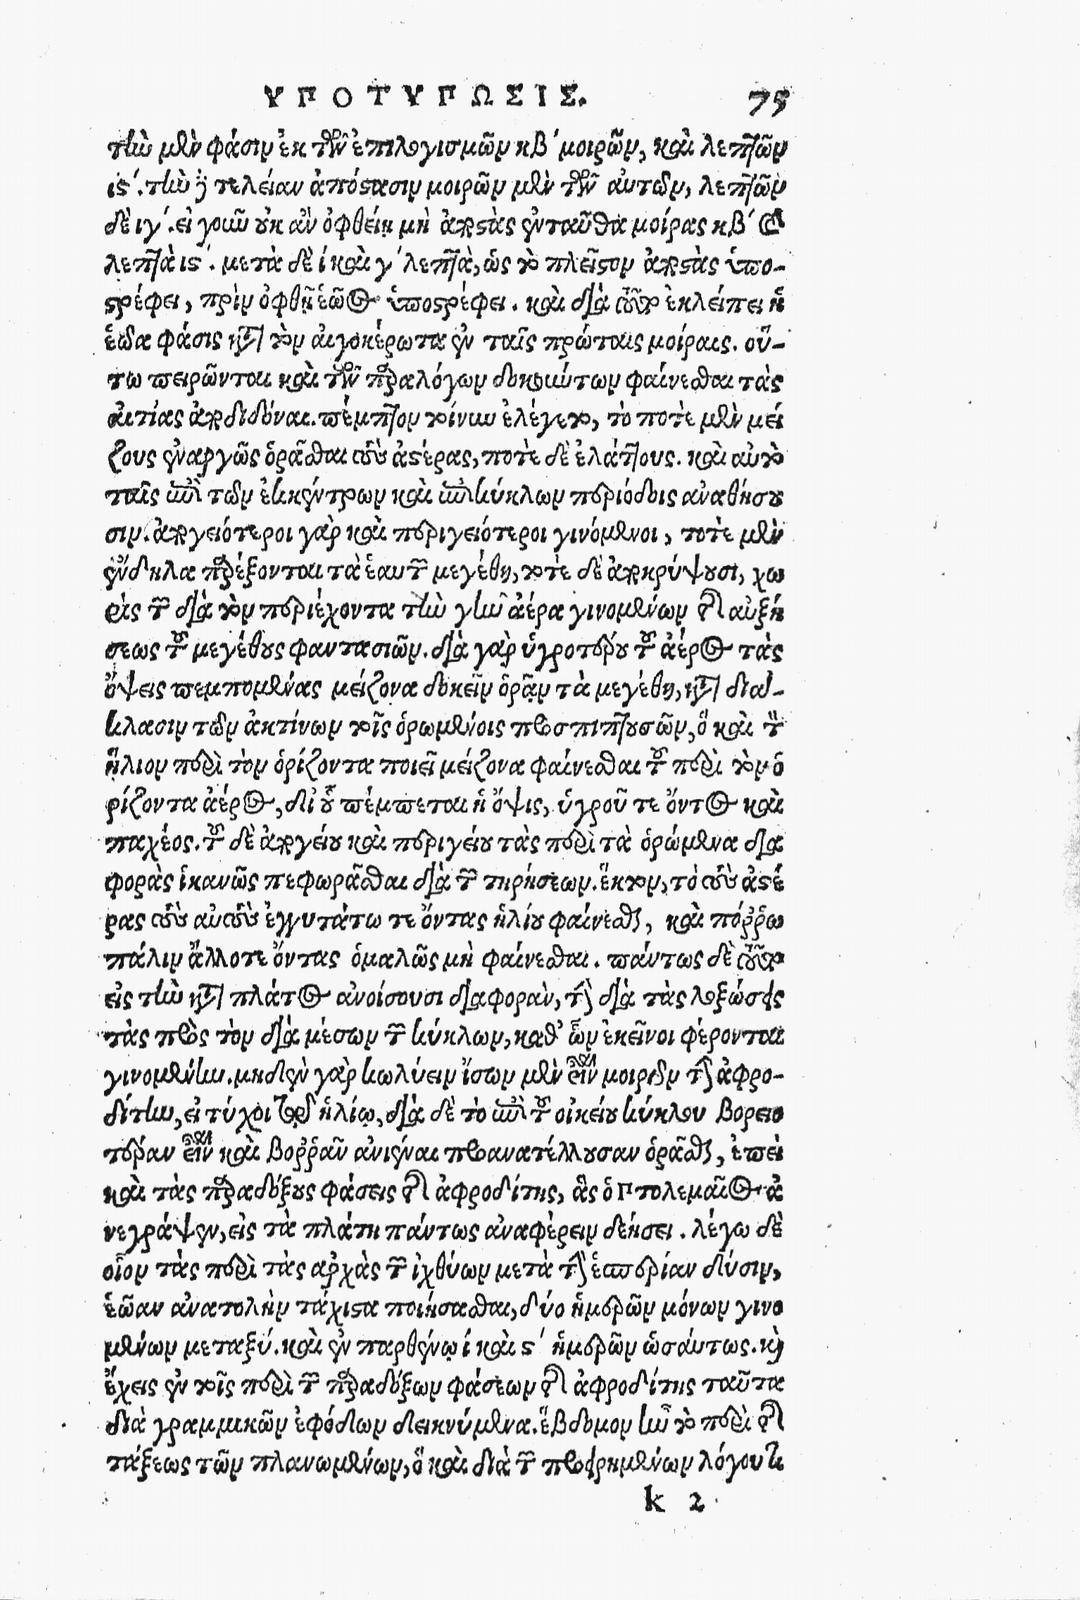 ΥΠΟΤΥΠΩΣΙΣ. 75
τὴν μὲν φάσιν ἐκ τῶν ἐπιλογισμῶν κβ΄ μοιρῶν, καὶ λεπτῶν
ις΄. τὴν δὲ τελείαν ἀπόστασιν μοιρῶν μὲν τῶν αὐτῶν, λεπτῶν
δὲ ιγ΄. εἰ γοῦν οὐκ ἂν ὀφθείη μὴ ἀποστὰς ἐνταῦθα μοίρας κβ΄ καὶ
λεπτὰ ις΄. μετὰ δὲ ί καὶ γ΄ λεπτὰ, ὡς τὸ πλεῖστον ἀποστὰς ὑπο-
στρέφει, πρὶν ὀφθῇ ἑῷος ὑποστρέφει. καὶ διὰ τοῦτο ἐκλείπει ἡ
ἑῴα φάσις κατὰ τὸν αἰγοκέρωτα ἐν ταῖς πρώταις μοίραις. οὕ-
τω πειρῶνται καὶ τῶν παραλόγων δοκούντων φαίνεσθαι τὰς
αἰτίας ἀποδιδόναι. πέμπτον τοίνυν ἐλέγετο, τὸ ποτὲ μὲν μεί
ζους ἐναργῶς ὁρᾶσθαι τοὺς ἀστέρας, ποτὲ δὲ ἐλάττους. καὶ αὐτὸ
ταῖς ἐπὶ τῶν ἐκκέντρων καὶ ἐπικύκλων περιόδοις ἀναθήσου
σιν. ἀπογειότεροι γὰρ καὶ περιγειότεροι γινόμενοι, τοτὲ μὲν
ἔνδηλα παρέξονται τὰ ἑαυτῶν μεγέθη, τοτὲ δὲ ἀποκρύψουσι, χω
ρὶς τῶν διὰ τὸν περιέχοντα τὴν γῆν ἀέρα γινομένων τῆς αὐξή
σεως τοῦ μεγέθους φαντασιῶν. διὰ γὰρ ὑγροτέρου τοῦ ἀέρος τὰς
ὄψεις πεμπομένας μείζονα δοκεῖν ὁρᾷν τὰ μεγέθη, κατὰ διά-
κλασιν τῶν ἀκτίνων τοῖς ὁρωμένοις προσπιπτουσῶν, ὃ καὶ τὸν
ἥλιον περὶ τὸν ὁρίζοντα ποιεῖ μείζονα φαίνεσθαι τοῦ περὶ τὸν ὁ
ρίζοντα ἀέρος, δι' οὗ πέμπεται ἡ ὄψις, ὑγροῦ τε ὄντος καὶ
παχέος. τοῦ δὲ ἀπογείου καὶ περιγείου τὰς περὶ τὰ ὁρώμενα δια
φορὰς ἱκανῶς πεφωρᾶσθαι διὰ τῶν τηρήσεων. ἕκτον, τὸ τοὺς ἀστέ
ρας τοὺς αὐτοὺς ἐγγυτάτω τε ὄντας ἡλίου φαίνεσθαι, καὶ πόῤῥω
πάλιν ἄλλοτε ὄντας ὁμαλῶς μὴ φαίνεσθαι. πάντως δὲ τοῦτο
εἰς τὴν κατὰ πλάτος ἀνοίσουσι διαφορὰν, τὴν διὰ τὰς λοξώσεις
τὰς πρὸς τὸν διὰ μέσων τῶν κύκλων, καθ' ὧν ἐκεῖνοι φέρονται
γινομένην. μηδὲν γὰρ κωλύειν ἴσων μὲν εἶναι μοιρῶν τὴν ἀφρο-
δίτην, εἰ τύχοι τῷ ἡλίῳ, διὰ δὲ τὸ ἐπὶ τοῦ οἰκείου κύκλου βορειο
τέραν εἶναι καὶ βοῤῥᾶν ἀνιέναι προανατέλλουσαν ὁρᾶσθαι, ἐπεὶ
καὶ τὰς παραδόξους φάσεις τῆς ἀφροδίτης, ἃς ὁ Πτολεμαῖος ἀ
νεγράψεν, εἰς τὰ πλάτη πάντως ἀναφέρειν δεήσει. λέγω δὲ
οἷον τὰς περὶ τὰς ἀρχὰς τῶν ἰχθύων μετὰ τὴν ἑσπερίαν δύσιν,
ἑῴαν ἀνατολὴν τάχιστα ποιήσασθαι, δύο ἡμερῶν μόνων γινο
μένων μεταξύ. καὶ ἐν παρθένῳ ί καὶ ς΄ ἡμερῶν ὡσάυτως. καὶ
ἔχεις ἐν τοῖς περὶ τῶν παραδόξων φάσεων τῆς ἀφροδίτης ταῦτα
διὰ γραμμικῶν ἐφόδων δεικνύμενα. ἕβδομον ἦν τὸ περὶ τῆς
τάξεως τῶν πλανωμένων, ὃ καὶ διὰ τῶν προειρημένων λόγου
k 2